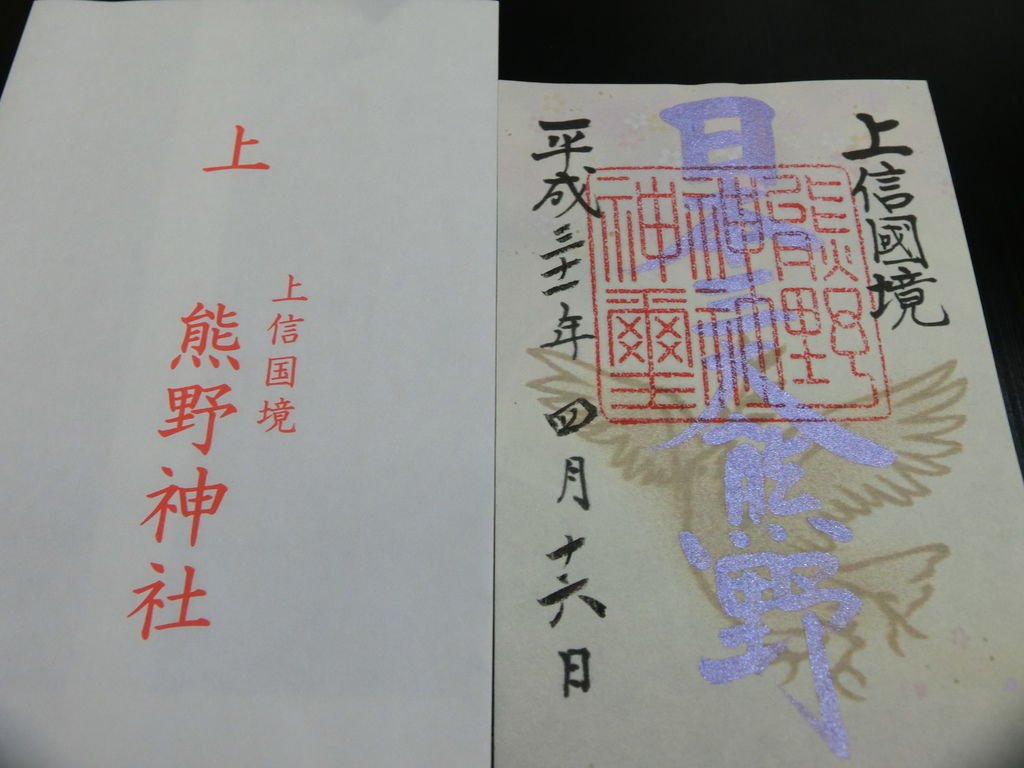 上
上信国境
熊野神社
上信國境
日本三大熊野
熊野
神社
神璽
平成三十一年四月十六日